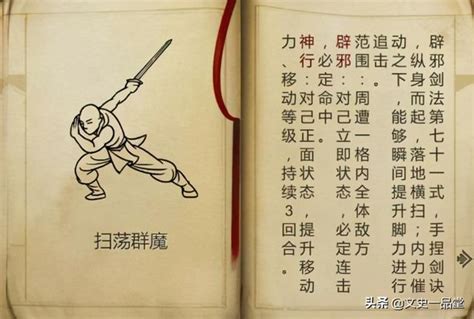 辟邪剑法第十一式，手捏剑诀
，纵身而起，落地横扫，内力催
动之下，能够瞬间提升脚力进行
追击。
范围：周遭一格内全体敌方
辟邪：对己立即状态，必定连击
，必定命中。
神行：对己正面状态，提升移动
力、移动等级，持续3回合。
扫荡群魔
头条 @文史一品堂